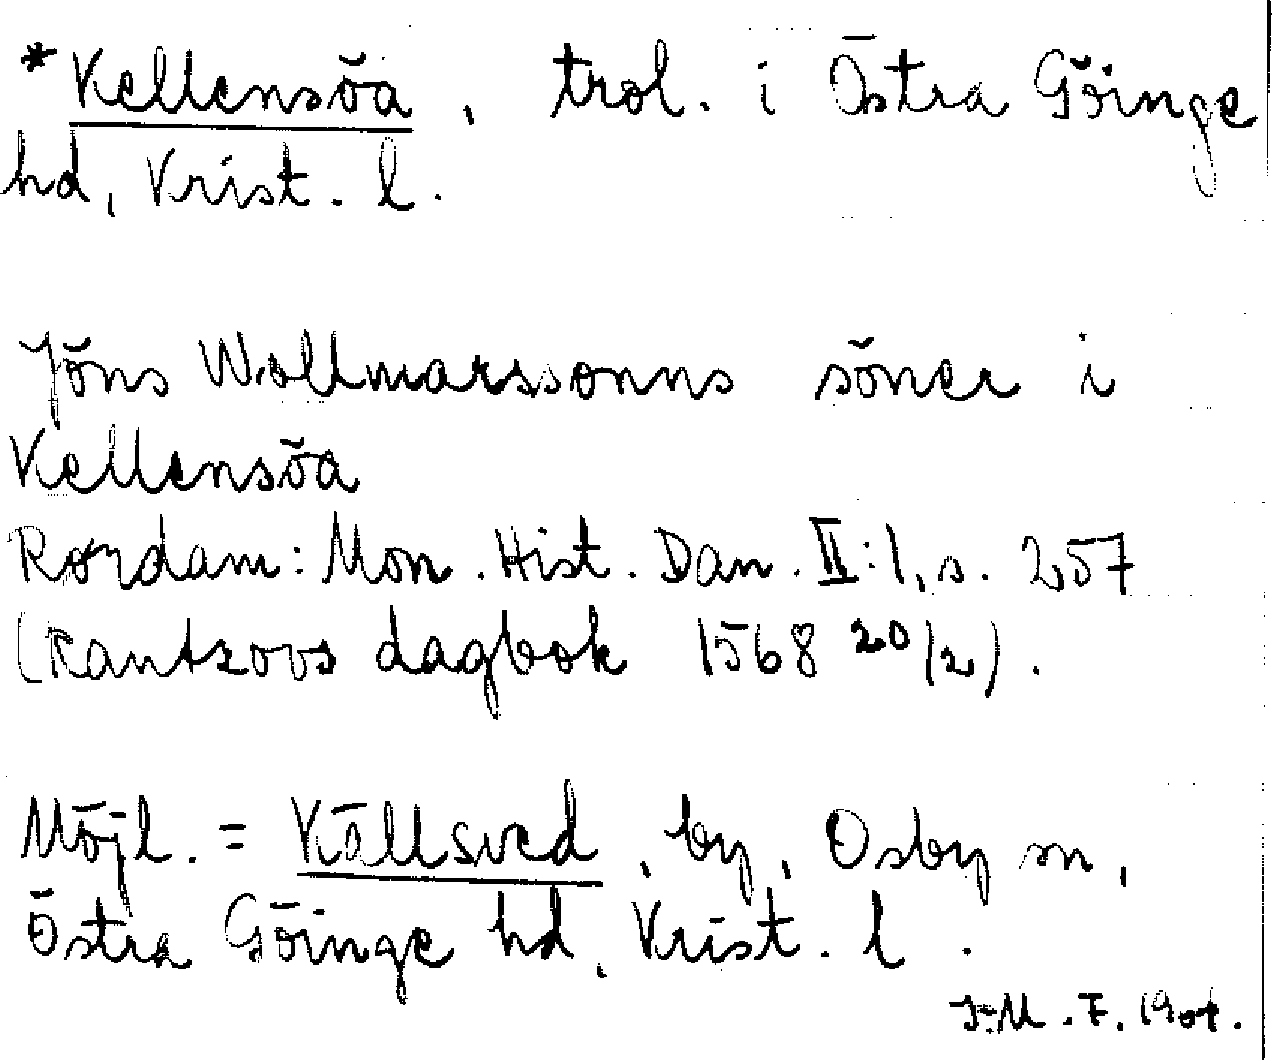 *Kellensöa, trol. i Östra Göinge
hd, Krist. l.
Jöns Wollmarssonns söner i
Kellensöa
Rørdam: Mon. Hist. Dan. II:1, s. 257
(Rantzovs dagbok 1568 20/2).
Möjl. = Källsved, by, Osby sn,
Östra Göinge hd, Krist. l.
F. 1904.